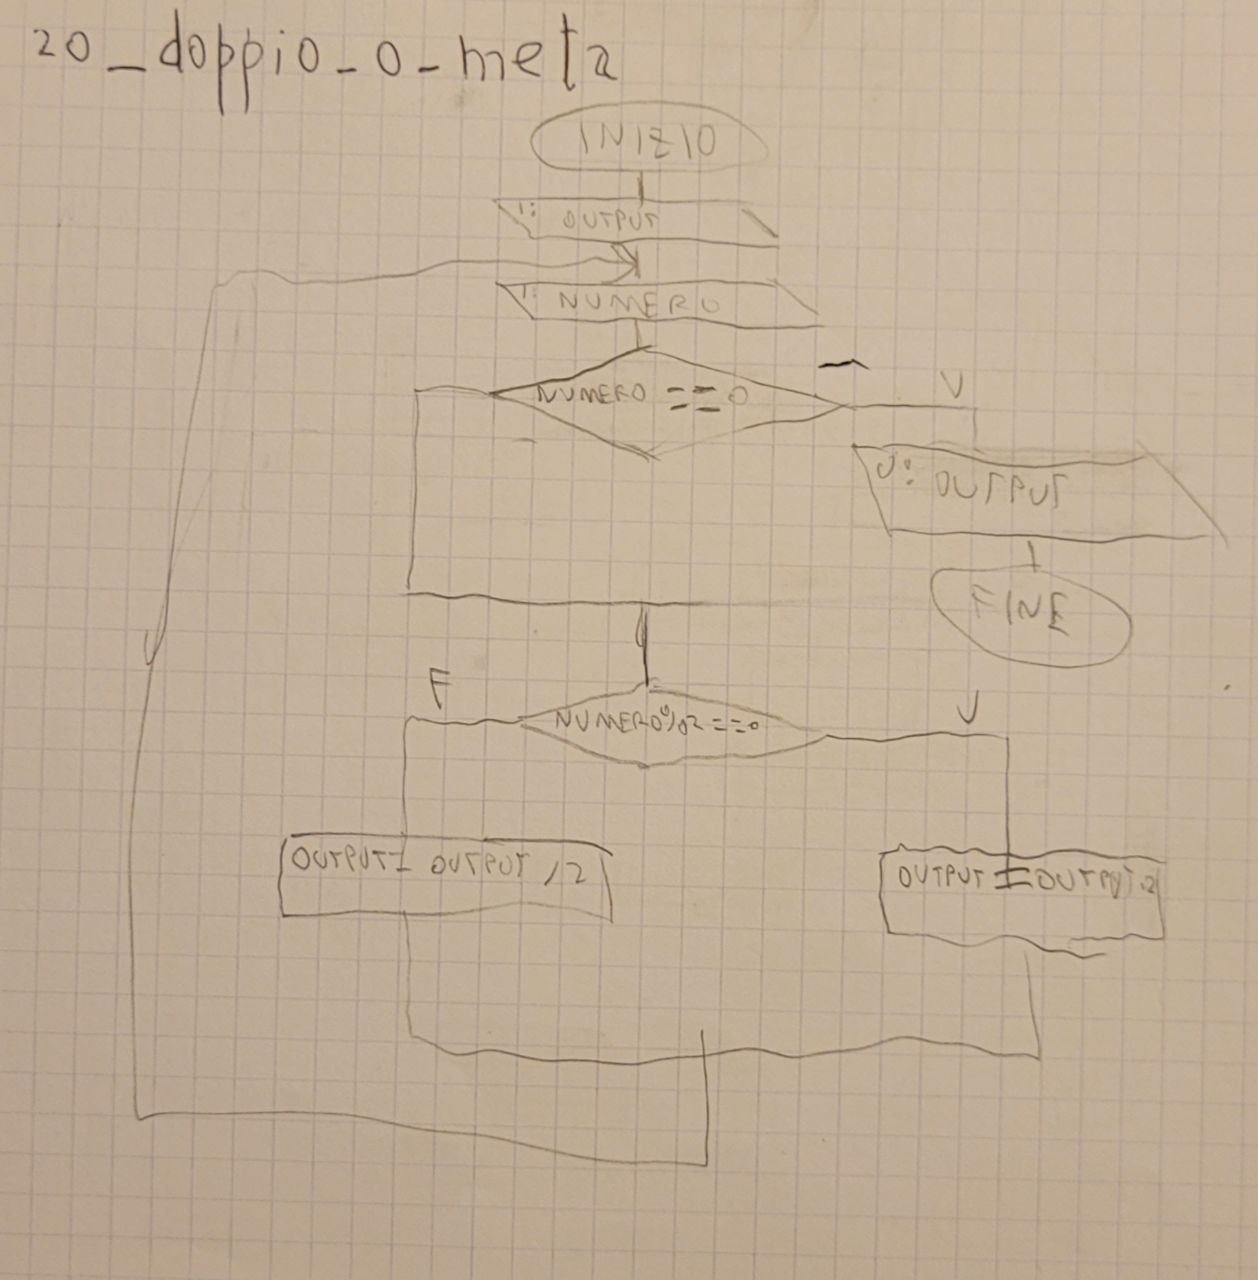 20_doppio_o_meta
INIZIO
i: OUTPUT
i: NUMERO
NUMERO == 0
V
U: OUTPUT
FINE
F
NUMERO%2==0
V
OUTPUT= OUTPUT /2
OUTPUT=OUTPUT.2